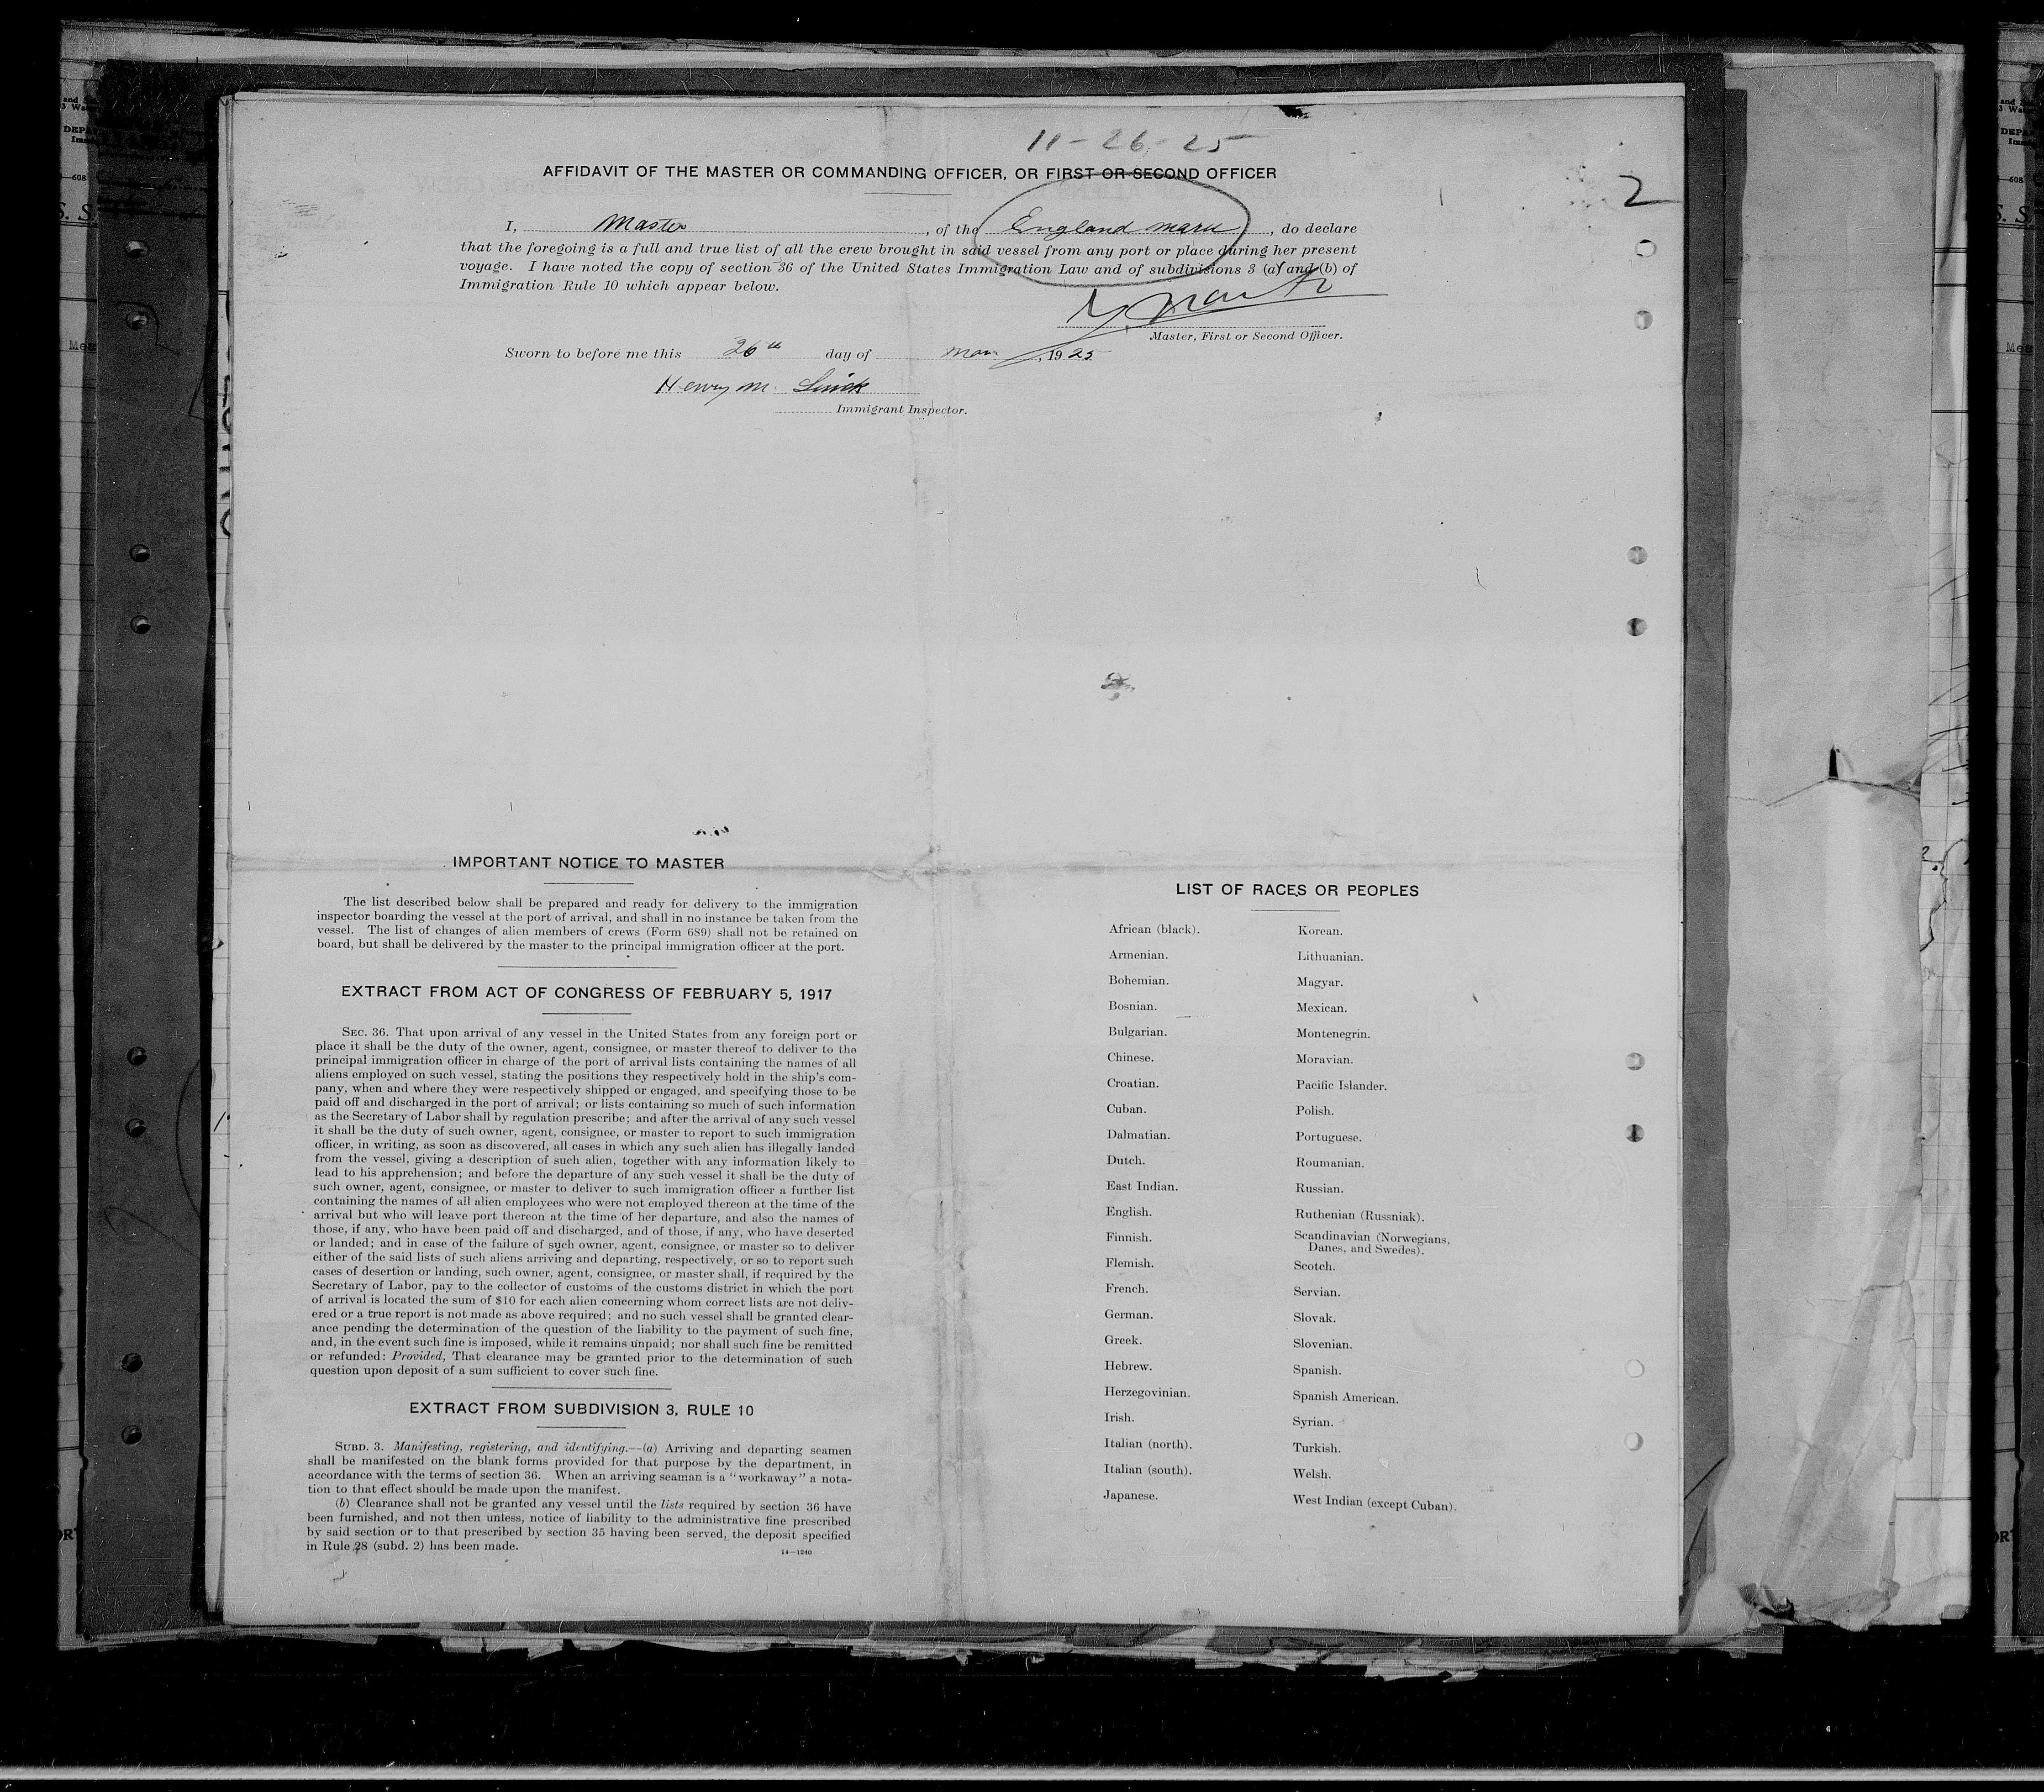 11-26-25
AFFIDAVIT OF THE MASTER OR COMMANDING OFFICER, OR FIRST OR SECOND OFFICER
2
I, Master, of the England Maru, do declare
that the foregoing is a full and true list of all the crew brought in said vessel from any port or place during her present
voyage. I have noted the copy of section 36 of the United States Immigration Law and of subdivisions 3 (a) and (b) of
Immigration Rule 10 which appear below.
Master, First or Second Officer.
Sworn to before me this 26th day of , 1925
Henry M.
Immigrant Inspector.
IMPORTANT NOTICE TO MASTER
The list described below shall be prepared and ready for delivery to the immigration
inspector boarding the vessel at the port of arrival, and shall in no instance be taken from the
vessel. The list of changes of alien members of crews (Form 689) shall not be retained on
board, but shall be delivered by the master to the principal immigration officer at the port.
EXTRACT FROM ACT OF CONGRESS OF FEBRUARY 5, 1917
SEC. 36. That upon arrival of any vessel in the United States from any foreign port or
place it shall be the duty of the owner, agent, consignee, or master thereof to deliver to the
principal immigration officer in charge of the port of arrival lists containing the names of all
aliens employed on such vessel, stating the positions they respectively hold in the ship's com-
pany, when and where they were respectively shipped or engaged, and specifying those to be
paid off and discharged in the port of arrival; or lists containing so much of such information
as the Secretary of Labor shall by regulation prescribe; and after the arrival of any such vessel
it shall be the duty of such owner, agent, consignee, or master to report to such immigration
officer, in writing, as soon as discovered, all cases in which any such alien has illegally landed
from the vessel, giving a description of such alien, together with any information likely to
lead to his apprehension; and before the departure of any such vessel it shall be the duty of
such owner, agent, consignee, or master to deliver to such immigration officer a further list
containing the names of all alien employees who were not employed thereon at the time of the
arrival but who will leave port thereon at the time of her departure, and also the names of
those, if any, who have been paid off and discharged, and of those, if any, who have deserted
or landed; and in case of the failure of such owner, agent, consignee, or master so to deliver
either of the said lists of such aliens arriving and departing, respectively, or so to report such
cases of desertion or landing, such owner, agent, consignee, or master shall, if required by the
Secretary of Labor, pay to the collector of customs of the customs district in which the port
of arrival is located the sum of $10 for each alien concerning whom correct lists are not deliv-
ered or a true report is not made as above required; and no such vessel shall be granted clear-
ance pending the determination of the question of the liability to the payment of such fine,
and, in the event such fine is imposed, while it remains unpaid; nor shall such fine be remitted
or refunded: Provided, That clearance may be granted prior to the determination of such
question upon deposit of a sum sufficient to cover such fine.
EXTRACT FROM SUBDIVISION 3, RULE 10
SUBD. 3. Manifesting, registering, and identifying.—(a) Arriving and departing seamen
shall be manifested on the blank forms provided for that purpose by the department, in
accordance with the terms of section 36. When an arriving seaman is a "workaway" a nota-
tion to that effect should be made upon the manifest.
(b) Clearance shall not be granted any vessel until the lists required by section 36 have
been furnished, and not then unless, notice of liability to the administrative fine prescribed
by said section or to that prescribed by section 35 having been served, the deposit specified
in Rule 28 (subd. 2) has been made.
14—1240
LIST OF RACES OR PEOPLES
African (black).
Armenian.
Bohemian.
Bosnian.
Bulgarian.
Chinese.
Croatian.
Cuban.
Dalmatian.
Dutch.
East Indian.
English.
Finnish.
Flemish.
French.
German.
Greek.
Hebrew.
Herzegovinian.
Irish.
Italian (north).
Italian (south).
Japanese.
Korean.
Lithuanian.
Magyar.
Mexican.
Montenegrin.
Moravian.
Pacific Islander.
Polish.
Portuguese.
Roumanian.
Russian.
Ruthenian (Russniak).
Scandinavian (Norwegians,
Danes, and Swedes).
Scotch.
Servian.
Slovak.
Slovenian.
Spanish.
Spanish American.
Syrian.
Turkish.
Welsh.
West Indian (except Cuban).